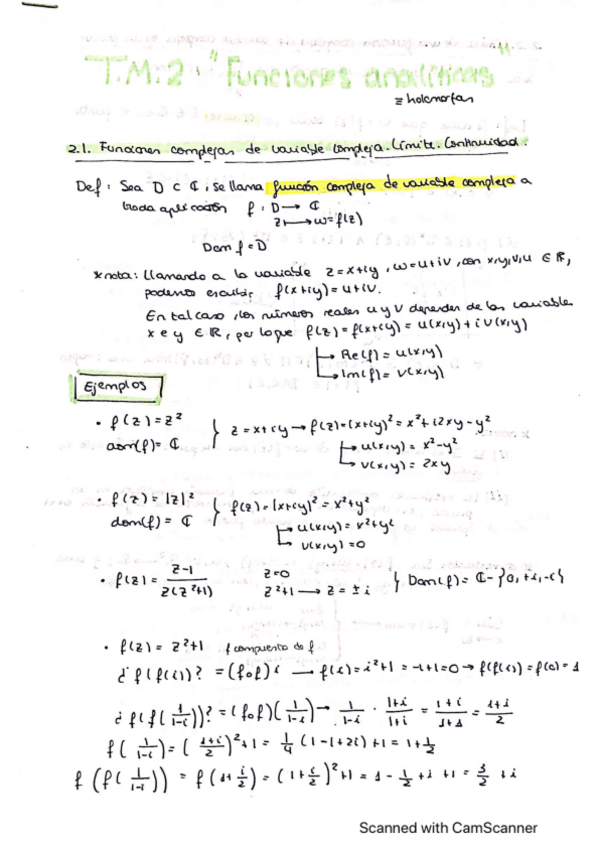 T.M.2: "Funciones analíticas"
≡ holomorfas
2.1. Funciones complejas de variable compleja. Límite. Continuidad.
Def: Sea D ⊂ ℂ, se llama función compleja de variable compleja a
toda aplicación f: D → ℂ
z → w=f(z)
Dom f = D
*nota: Llamando a la variable z=x+iy, w=u+iv, con x,y,v,u ∈ ℝ,
podemos escribir f(x+iy)=u+iv.
En tal caso, los números reales u y v dependen de las variables
x e y ∈ ℝ, por lo que f(z)=f(x+iy)=u(x,y)+iv(x,y)
→ Re(f)=u(x,y)
→ Im(f)=v(x,y)
Ejemplos
• f(z)=z² } z=x+iy → f(z)=(x+iy)²=x²+i2xy-y²
dom(f)=ℂ → u(x,y)=x²-y²
→ v(x,y)=2xy
• f(z)=|z|² } f(z)=|x+iy|²=x²+y²
dom(f)=ℂ → u(x,y)=x²+y²
→ v(x,y)=0
• f(z)= z-1 / z(z²+1) z=0
z²+1 → z=±i } Dom(f)=ℂ-{0,+i,-i}
• f(z)=z²+1 f compuesto de f
¿f(f(i))? =(f∘f)i → f(i)=i²+1=-1+1=0 → f(f(i))=f(0)=1
¿f(f(1/(1-i)))? =(f∘f)(1/(1-i)) → 1/(1-i) · (1+i)/(1+i) = (1+i)/(1+1) = (1+i)/2
f(1/(1-i))=((1+i)/2)²+1= 1/4 (1-1+2i)+1=1+i/2
f(f(1/(1-i))) = f(1+i/2)=(1+i/2)²+1=1-1/2+i+1=3/2+i
Scanned with CamScanner